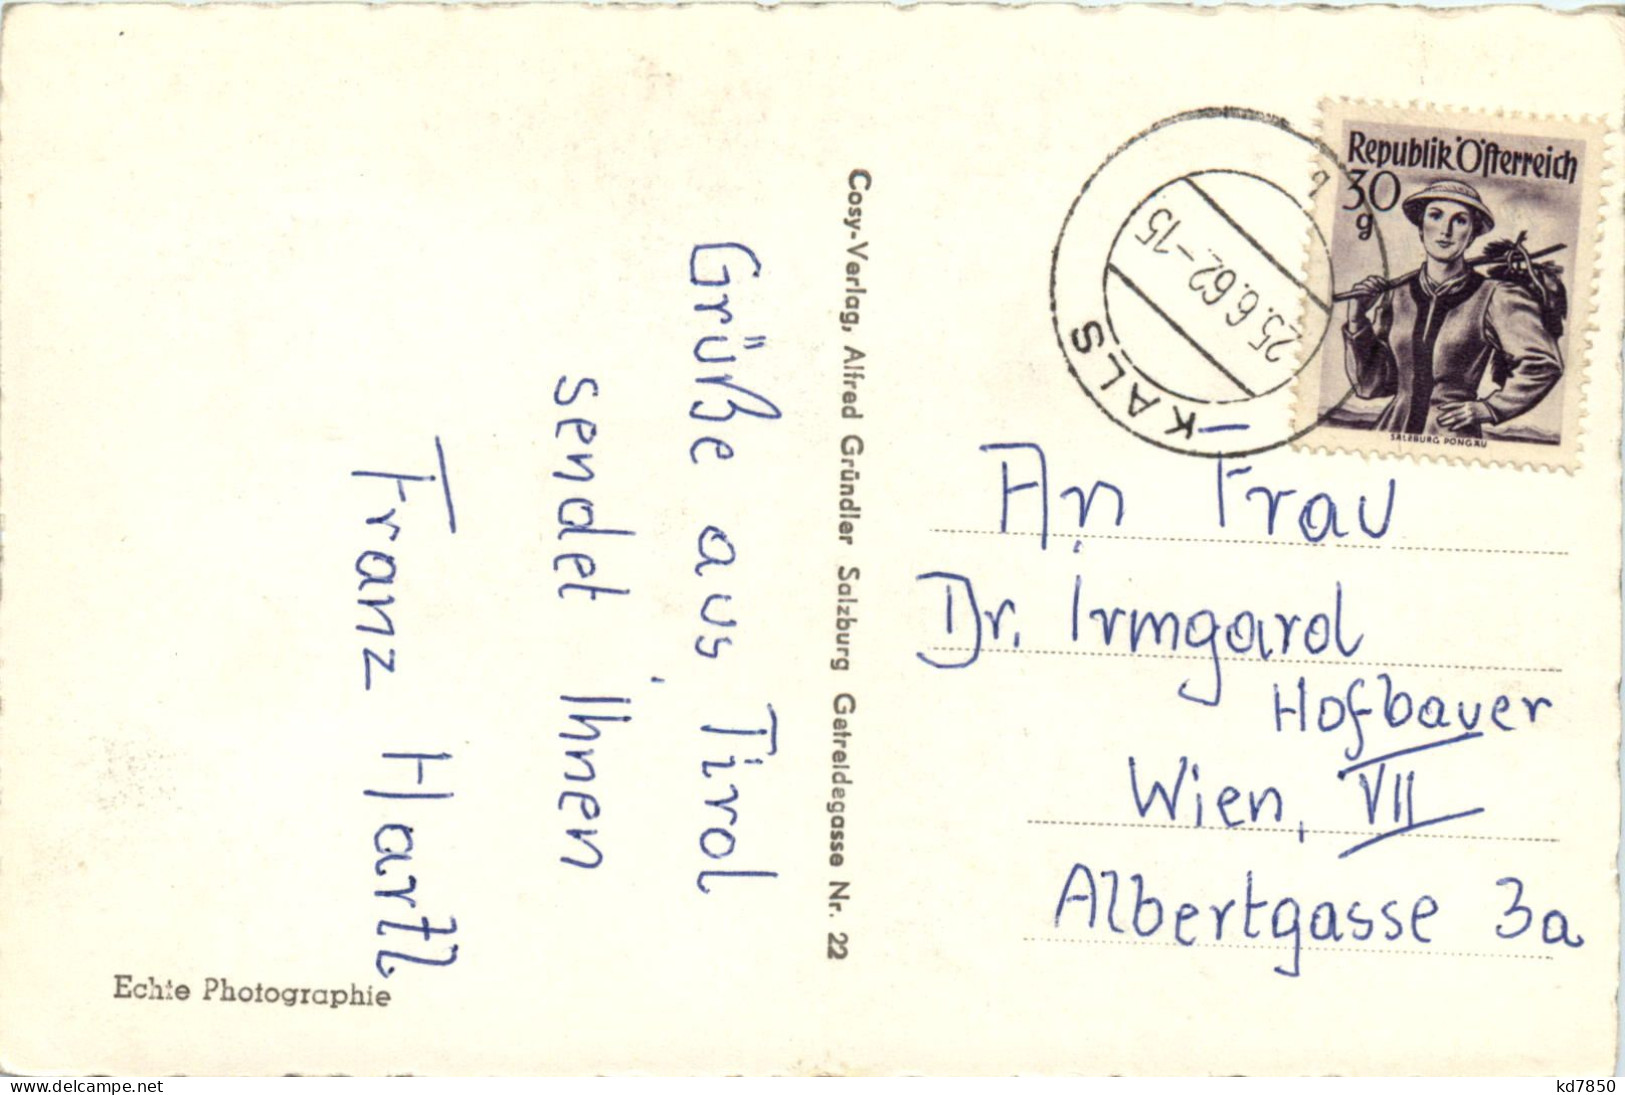 Grüße aus Tirol
sendet Ihnen
Franz Hartl
Echte Photographie
Cosy-Verlag, Alfred Gründler Salzburg Getreidegasse Nr. 22
KALS
25.6.62.-15
b
Republik Österreich
30
g
SALZBURG PONGAU
An Frau
Dr. Irmgard
Hofbauer
Wien, VII
Albertgasse 3a
www.delcampe.net
kd7850